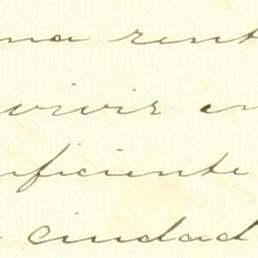 na rent
vivir en
ficiente
ciudad